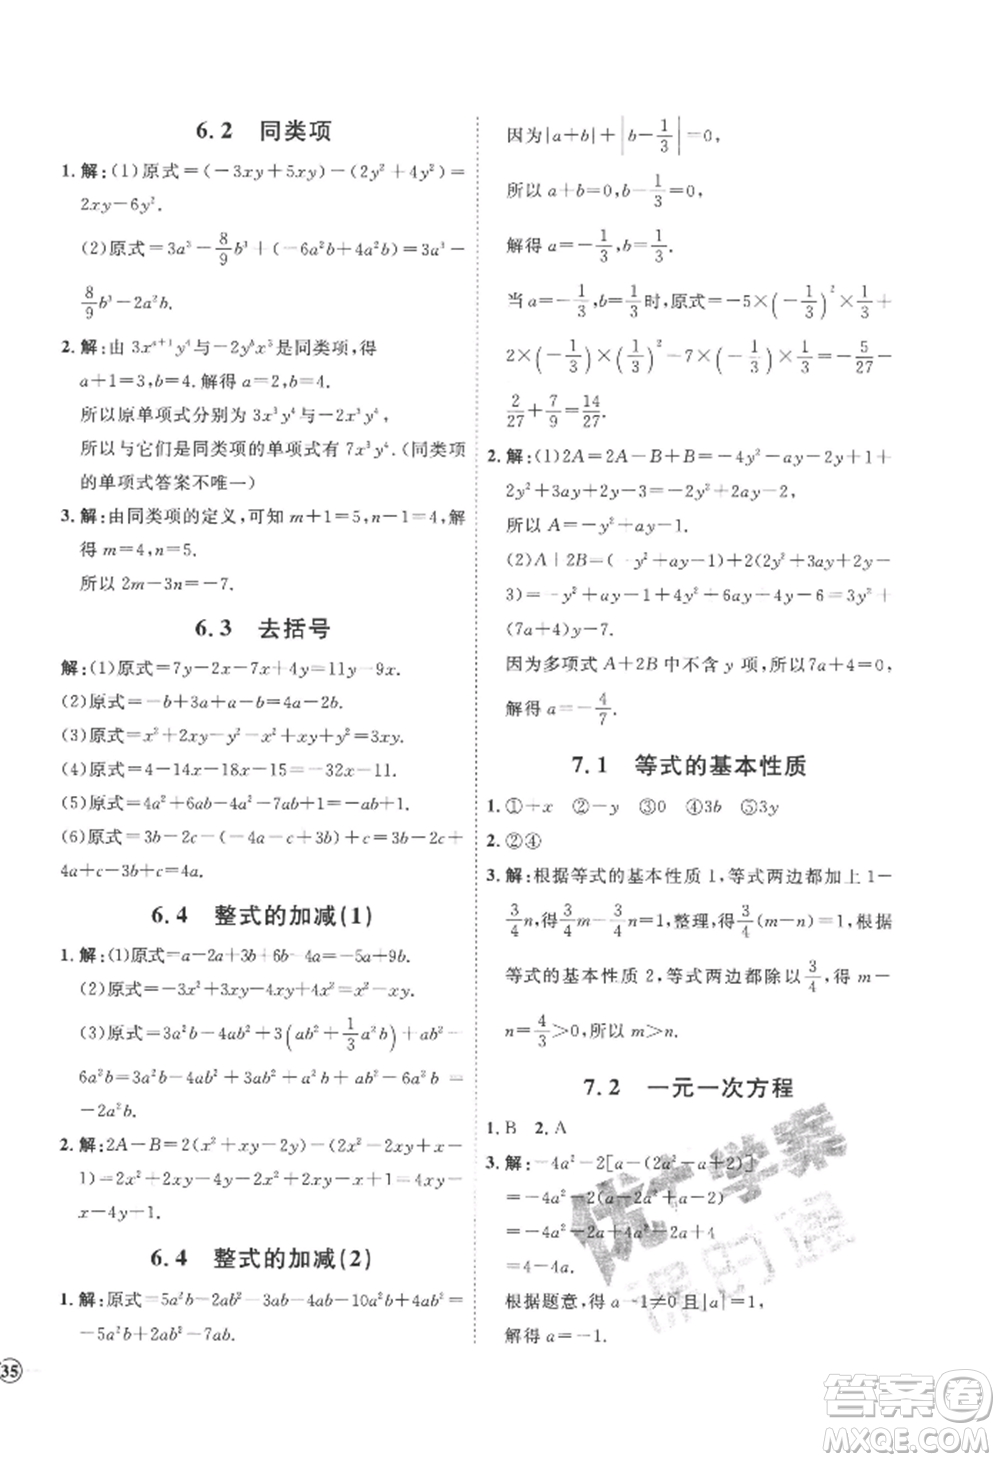 6.2 同类项
1. 解:(1)原式=(-3xy+5xy)-(2y²+4y²)=
2xy-6y².
(2)原式=3a³-8/9b³+(-6a²b+4a²b)=3a³-
8/9b³-2a²b.
2. 解:由3xᵃ⁺¹y⁴与-2yᵇx³是同类项,得
a+1=3,b=4.解得a=2,b=4.
所以原单项式分别为3x³y⁴,-2x³y⁴,
所以与它们是同类项的单项式有7x³y⁴.(同类项
的单项式答案不唯一)
3. 解:由同类项的定义,可知m+1=5,n-1=4,解
得m=4,n=5.
所以2m-3n=-7.
6.3 去括号
解:(1)原式=7y-2x-7x+4y=11y-9x.
(2)原式=-b+3a+a-b=4a-2b.
(3)原式=x²+2xy-y²-x²-2xy-y²=-2y².
(4)原式=4-14x-18x-15=-32x-11.
(5)原式=4a²+6ab-4a²-7ab+1=-ab+1.
(6)原式=3b-2c-(-4a+c+3b)+c=3b-2c+
4a-c-3b+c+2c=4a.
6.4 整式的加减(1)
1. 解:(1)原式=a-2a+3b+6b-4a=-5a+9b.
(2)原式=-3x²+2xy+3x²-3xy=-xy.
(3)原式=3a²b-4ab²+3(ab²+1/3a²b)+ab²-
6a²b=3a²b-4ab²+3ab²+a²b+ab²-6a²b=
-2a²b.
2. 解:2A-B=2(x²+xy-2y)-(2x²-2xy+x-
1)=2x²+2xy-4y-2x²+2xy-x+1=4xy-
4y-x+1.
6.4 整式的加减(2)
1. 解:原式=5a²b-2ab²-3ab-10a²b+4ab²-4ab=
-5a²b+2ab²-7ab.
因为|a+b|+|b-1/3|=0,
所以a+b=0,b-1/3=0.
解得a=-1/3,b=1/3.
当a=-1/3,b=1/3时,原式=-5×(-1/3)²×1/3+
2×(-1/3)×(1/3)²-7×(-1/3)×1/3=-5/27-
2/27+7/9=14/27.
2. 解:(1)2A=2A-B+B=-4y²-ay-2y+1+
2y²+3ay+2y-3=-2y²+2ay-2,
所以A=-y²+ay-1.
(2)A+2B=(-y²+ay-1)+2(2y²+3ay+2y-
3)=-y²+ay-1+4y²+6ay+4y-6=3y²+
(7a+4)y-7.
因为多项式A+2B中不含y项,所以7a+4=0,
解得a=-4/7.
7.1 等式的基本性质
1. ①+x ②-y ③0 ④3b ⑤3y
2. ②④
3. 解:根据等式的基本性质1,等式两边都加上1-
3/4n,得3/4m-3/4n=1,整理,得3/4(m-n)=1,根据
等式的基本性质2,等式两边都除以3/4,得m-
n=4/3>0,所以m>n.
7.2 一元一次方程
1. B 2. A
3. 解:-4a²-2[a-(2a²-a+2)]
=-4a²-2(a-2a²+a-2)
=-4a²-2a+4a²-2a+4
=-4a+4.
根据题意,得a-1≠0且|a|=1,
解得a=-1.
35
优+学案
课时通
答案卷
MXQE.COM